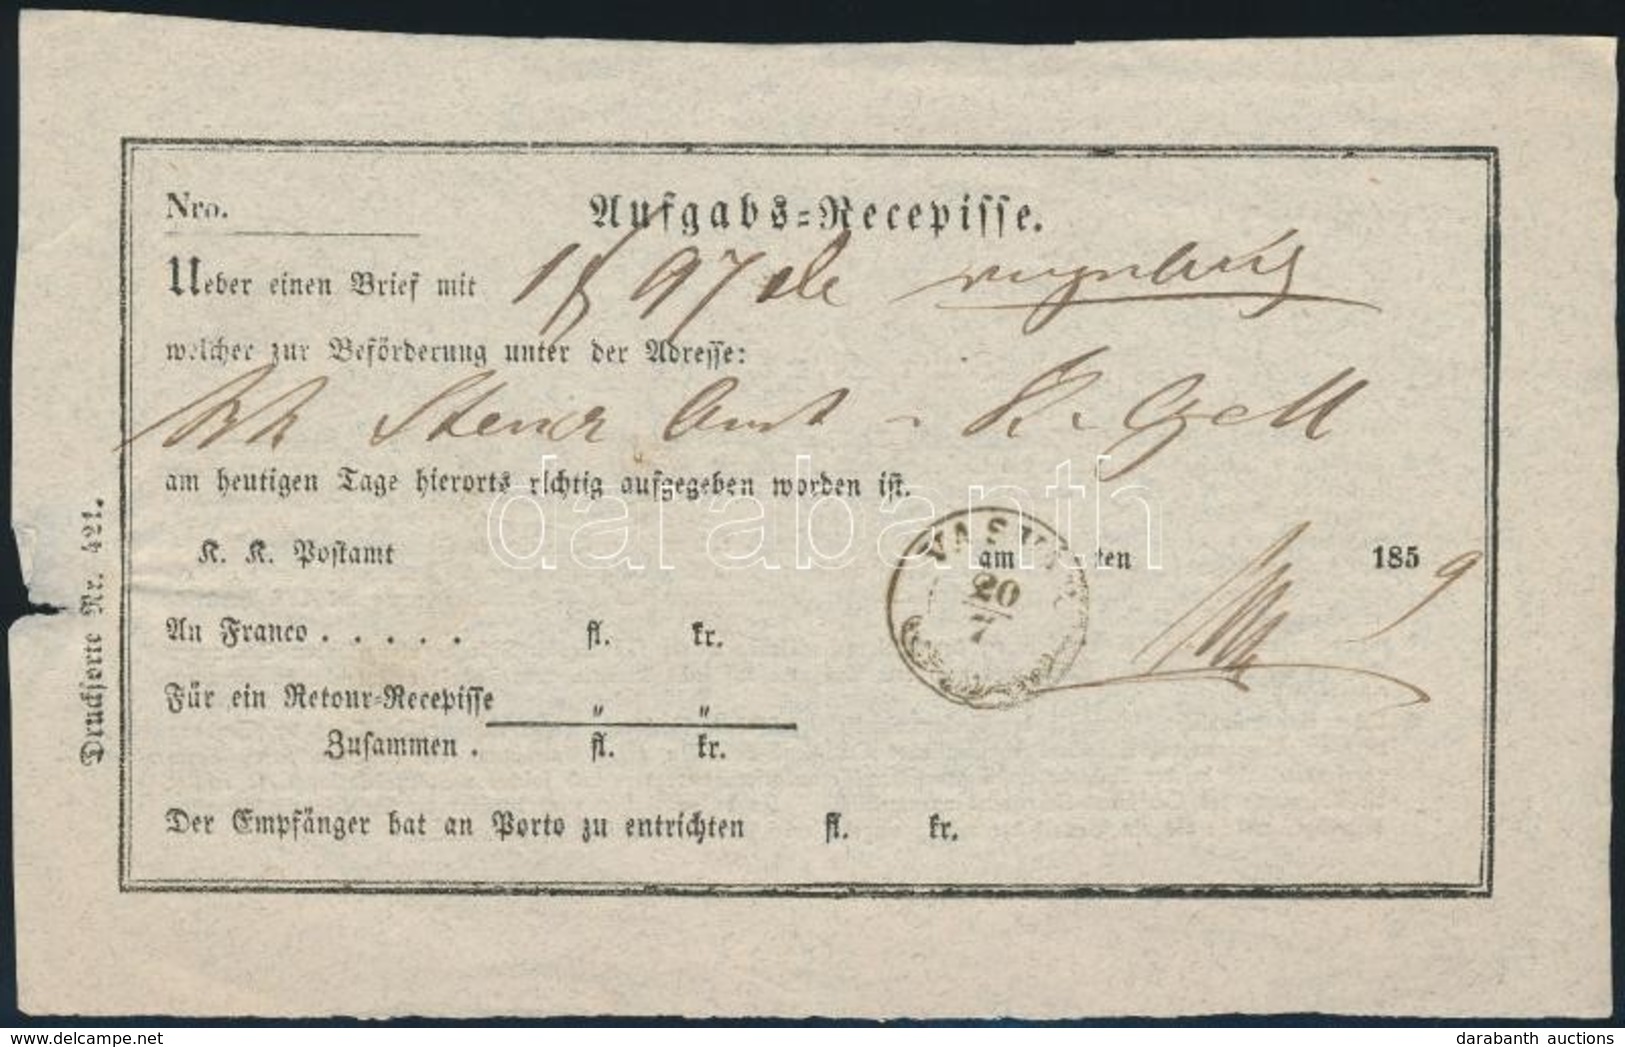 Nro.
Aufgabs-Recepisse.
Ueber einen Brief mit 1 f 97
welcher zur Beförderung unter der Adresse:
Steuer Amt
am heutigen Tage hierorts richtig aufgegeben worden ist.
K. K. Postamt am ten 1859
VASV
20
7
An Franco . . . . . fl. kr.
Für ein Retour-Recepisse „ „
Zusammen . fl. kr.
Der Empfänger hat an Porto zu entrichten fl. kr.
Drucksorte Nr. 421.
darabanth
delcampe.net
darabanth auctions